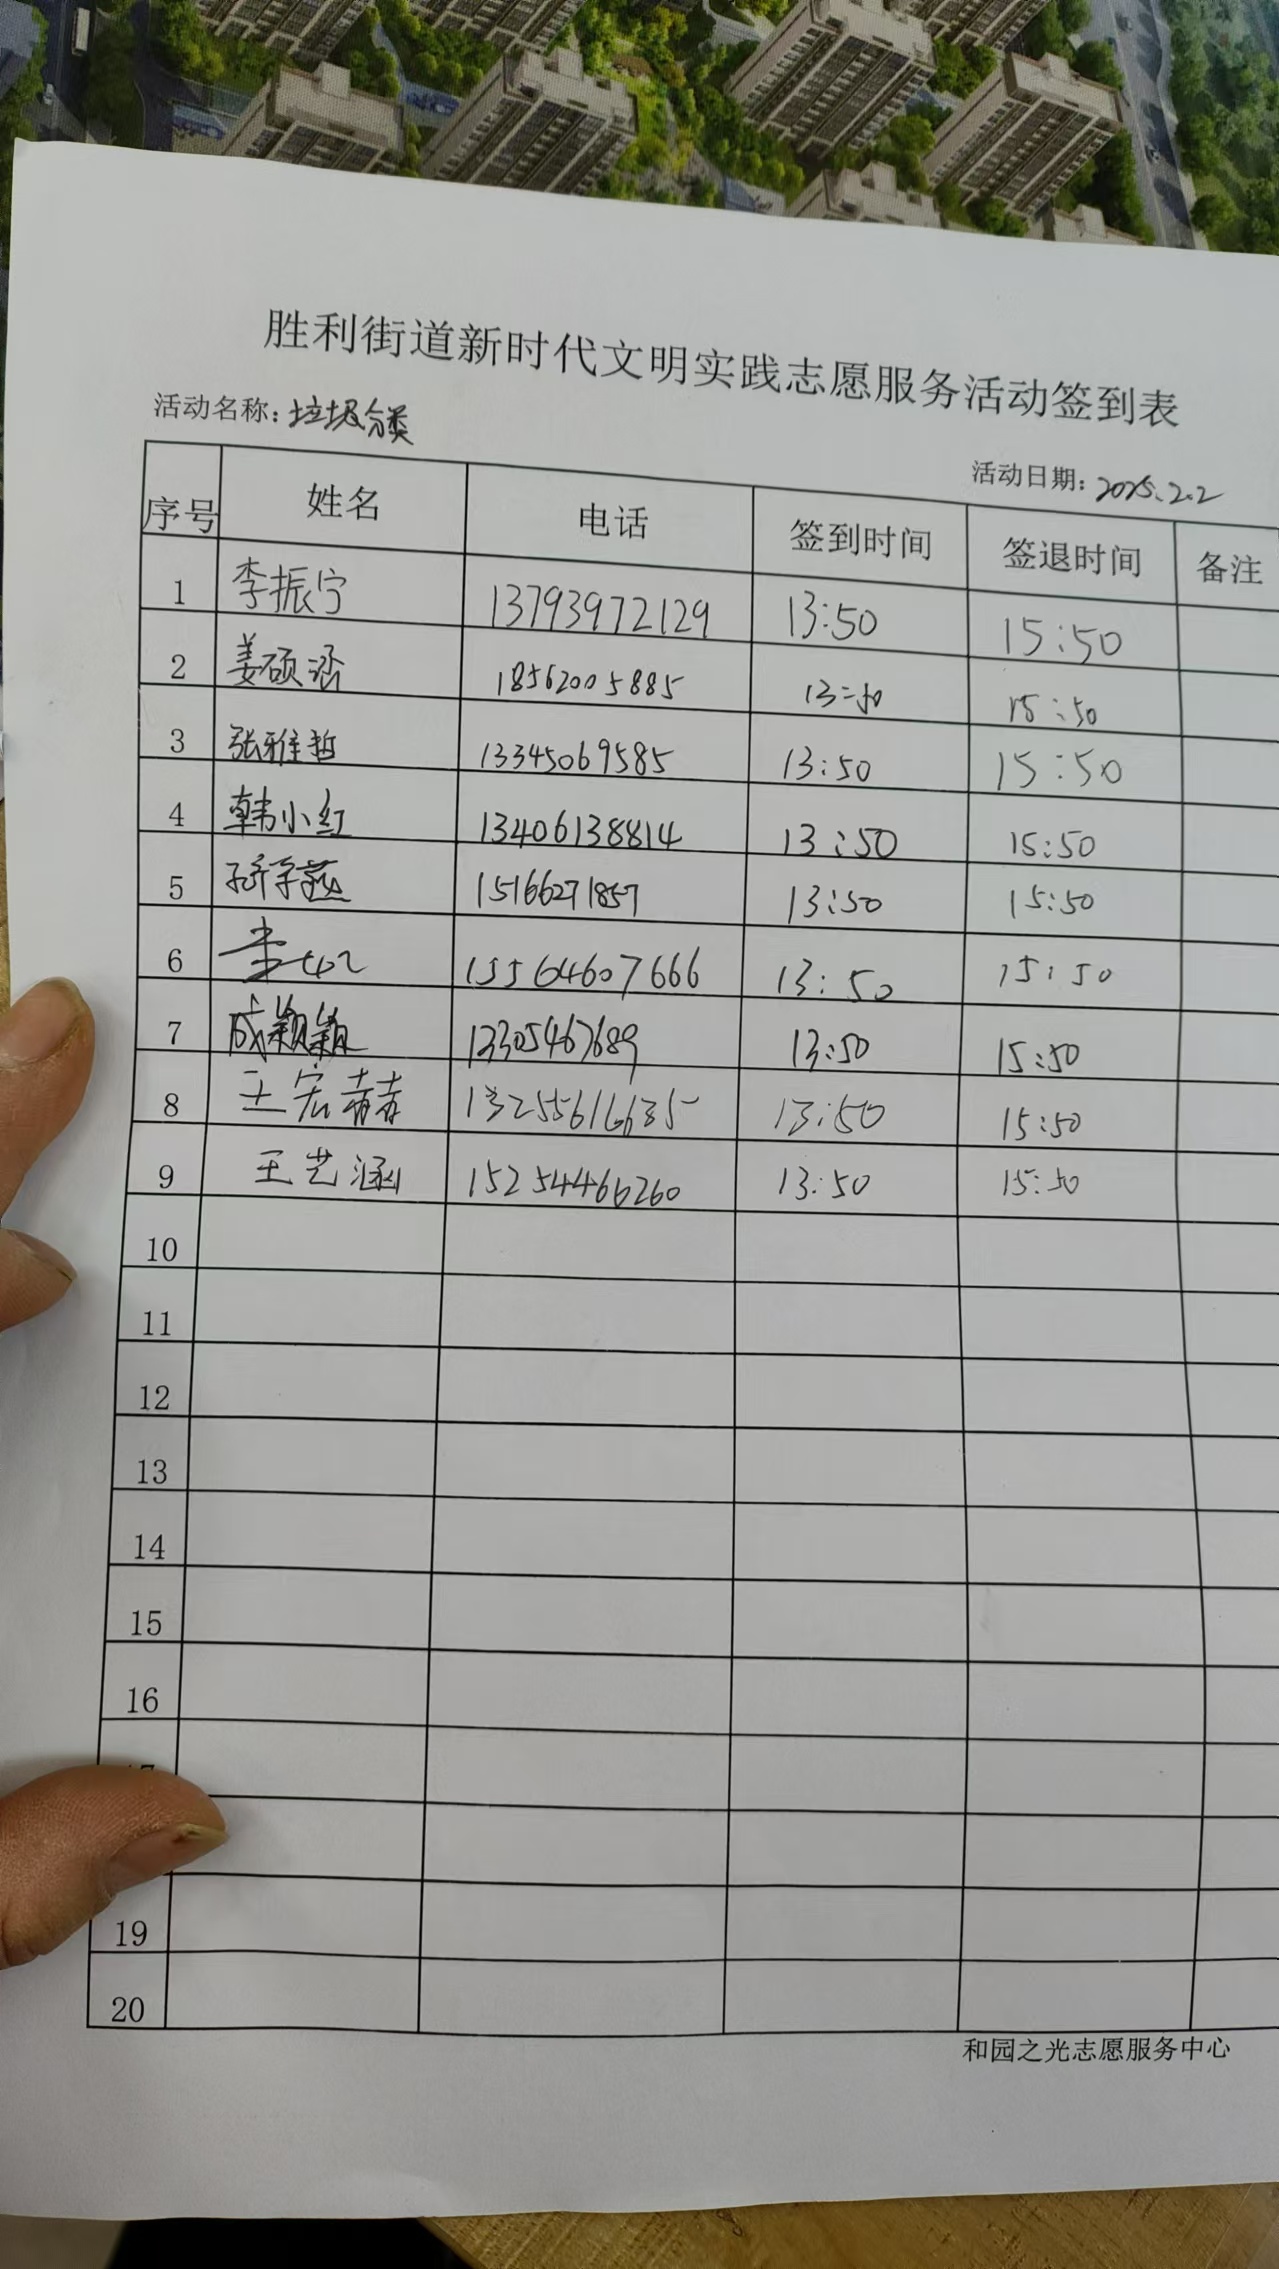 胜利街道新时代文明实践志愿服务活动签到表
活动名称：垃圾分类
活动日期：2025.2.2
序号 姓名 电话 签到时间 签退时间 备注
1 李振宁 13793972129 13:50 15:50
2 姜硕涵 18562005885 13:50 15:50
3 张雅哲 13345069585 13:50 15:50
4 韩小红 13406138814 13:50 15:50
5 15166271857 13:50 15:50
6 15564607666 13:50 15:50
7 成颖颖 13305467689 13:50 15:50
8 王宏 13:50 15:50
9 王艺涵 15254466260 13:50 15:50
10
11
12
13
14
15
16
19
20
和园之光志愿服务中心